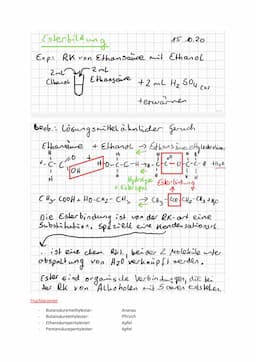 Esterbildung 15.10.20
Exp: RK von Ethansäure mit Ethanol
2 mL 2 mL
Ethanol Ethansäure + 2 mL H2SO4
+ erwärmen
Beob.: Lösungsmittelähnlicher Geruch
Ethansäure + Ethanol → Ethansäureethylester
Hydrolyse
Esterbindung
CH3-COOH + HO-CH2-CH3 → CH3-COO-CH2-CH3 + H2O
Die Esterbindung ist von der RK-art eine
Substitution. Speziell eine Kondensations
... ist eine chem. Rkt., bei der 2 Moleküle unter
abspaltung von H2O verknüpft werden.
Ester sind organische Verbindungen, die bei
der RK von Alkoholen mit Säuren entstehen
Fruchtaromen
- Butansäuremethylester: Ananas
- Butansäureethylester: Pfirsich
- Ethansäurepentylester: Apfel
- Pentansäurepentylester: Apfel